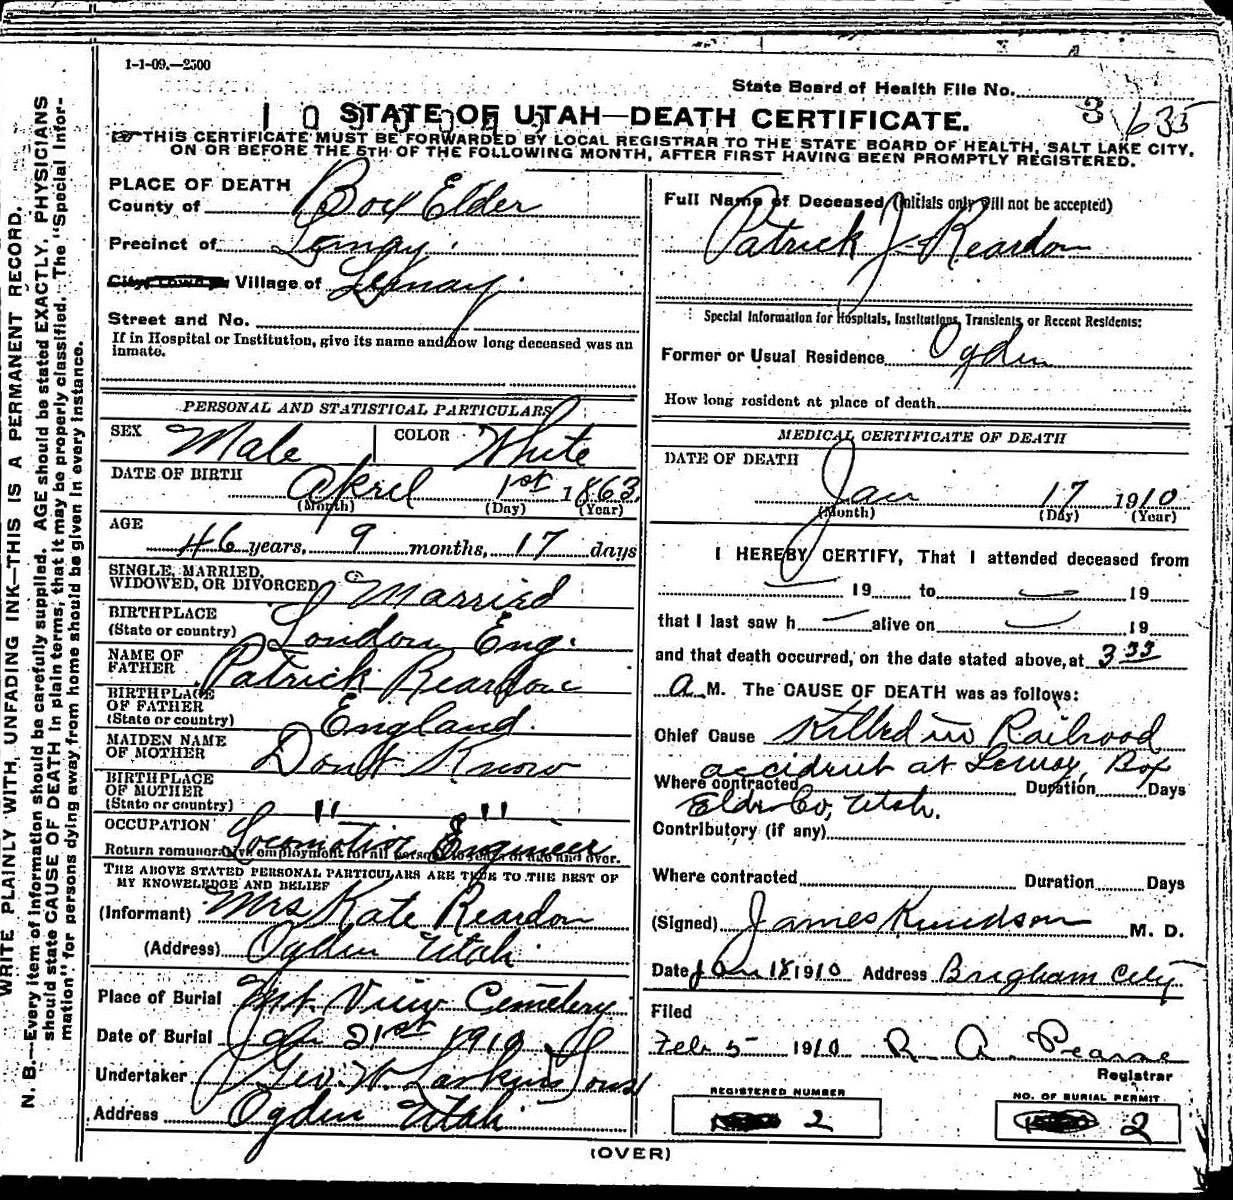 WRITE PLAINLY WITH UNFADING INK—THIS IS A PERMANENT RECORD.
N. B.—Every item of information should be carefully supplied. AGE should be stated EXACTLY. PHYSICIANS
should state CAUSE OF DEATH in plain terms, that it may be properly classified. The "Special Infor-
mation" for persons dying away from home should be given in every instance.
1-1-09.—2500
State Board of Health File No. 3 635
STATE OF UTAH—DEATH CERTIFICATE.
THIS CERTIFICATE MUST BE FORWARDED BY LOCAL REGISTRAR TO THE STATE BOARD OF HEALTH, SALT LAKE CITY,
ON OR BEFORE THE 5TH OF THE FOLLOWING MONTH, AFTER FIRST HAVING BEEN PROMPTLY REGISTERED.
PLACE OF DEATH
County of Box Elder
Precinct of Lemay.
City, Town or Village of Lemay.
Street and No.
If in Hospital or Institution, give its name and how long deceased was an
inmate.
PERSONAL AND STATISTICAL PARTICULARS
SEX Male COLOR White
DATE OF BIRTH April 1st 1863
(Month) (Day) (Year)
AGE
46 years, 9 months, 17 days
SINGLE, MARRIED,
WIDOWED, OR DIVORCED Married
BIRTHPLACE
(State or country) London Eng.
NAME OF
FATHER Patrick Reardon
BIRTHPLACE
OF FATHER
(State or country) England.
MAIDEN NAME
OF MOTHER Dont Know
BIRTHPLACE
OF MOTHER
(State or country) " "
OCCUPATION Locomotive Engineer
Return remunerative employment for all persons 10 years of age and over.
THE ABOVE STATED PERSONAL PARTICULARS ARE TRUE TO THE BEST OF
MY KNOWLEDGE AND BELIEF
(Informant) Mrs Kate Reardon
(Address) Ogden Utah.
Place of Burial Mt. View Cemetery
Date of Burial Jan 21st 1910
Undertaker Geo. W. Larkin & Sons
Address Ogden Utah.
Full Name of Deceased (Initials only will not be accepted)
Patrick J. Reardon
Special Information for Hospitals, Institutions, Transients, or Recent Residents:
Former or Usual Residence Ogden
How long resident at place of death
MEDICAL CERTIFICATE OF DEATH
DATE OF DEATH
Jan 17 1910
(Month) (Day) (Year)
I HEREBY CERTIFY, That I attended deceased from
— 19 to — 19
that I last saw h — alive on — 19
and that death occurred, on the date stated above, at 3 33
A M. The CAUSE OF DEATH was as follows:
Chief Cause Killed in Railroad
accident at Lemay, Box
Where contracted Duration Days
Elder Co, Utah.
Contributory (if any)
Where contracted Duration Days
(Signed) James Knudson M. D.
Date Jan 18 1910 Address Brigham City
Filed
Feb 5 1910 R. A. Pearse
Registrar
REGISTERED NUMBER
2
NO. OF BURIAL PERMIT
2
(OVER)